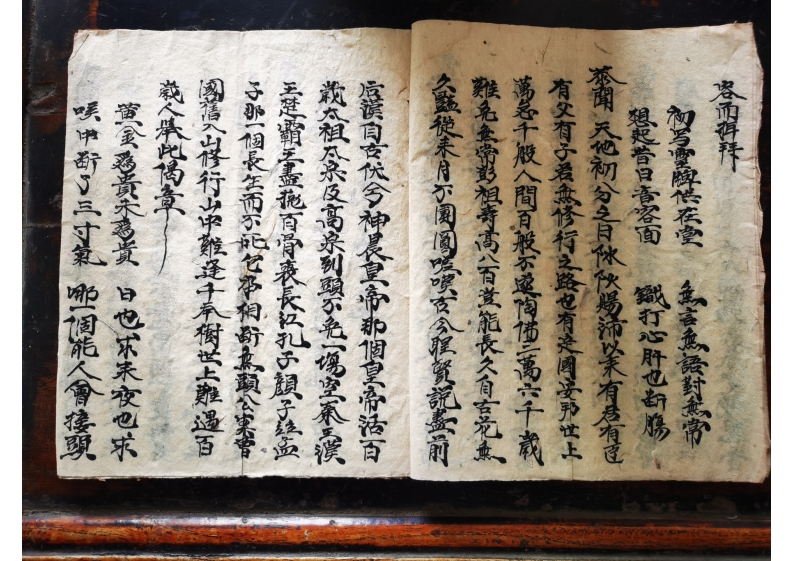 容而拜拜
初写靈牌供在堂 無言無語對無常
想起昔日音容面 鐵打心肝也斷腸
恭聞 天地初分之日 以來有君有臣
有父有子君無修行之路也有定國安邦世上
萬急千般人間百般不 陶 二萬六千歲
難免無常彭祖壽高八百豈能長久自古花無
久 從來月不圓圓 嘆古今聖賢說盡前
后漢自古伏兮神農皇帝那個皇帝活一百
歲太祖太宗及高宗到頭不免一場空秦王漢
王楚霸王盡拖百骨表長江孔子顔子並孟
子那一個長生而不 無頭公案書
國舊入山修行山中難逢千年樹世上難過百
歲人舉此偈章
黄金爲貴不爲貴 日也求來夜也求
喉中斷了三寸氣 哪一個能人會接頭